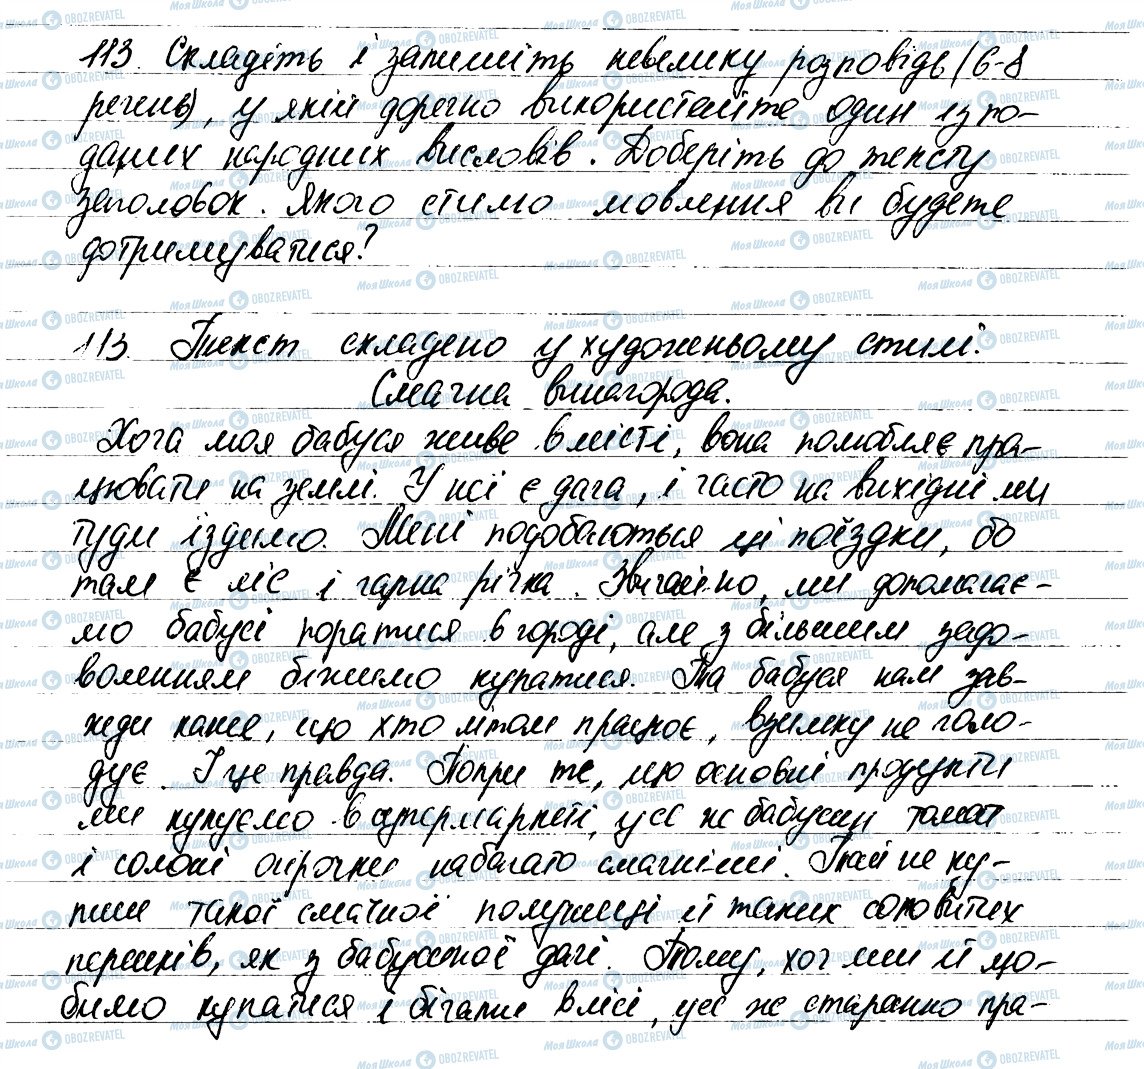 113. Складіть і запишіть невелику розповідь (6-8
речень), у якій доречно використайте один із по-
даних народних висловів. Доберіть до тексту
заголовок. Якого стилю мовлення ви будете
дотримуватися?
113. Текст складено у художньому стилі.
Смачна винагорода.
Хоча моя бабуся живе в місті, вона полюбляє пра-
цювати на землі. У неї є дача, і часто на вихідні ми
туди їздимо. Мені подобаються ці поїздки, бо
там є ліс і гарна річка. Звичайно, ми допомагає-
мо бабусі поратися в городі, але з більшим задо-
воленням біжимо купатися. Та бабуся нам зав-
жди каже, що хто літом працює, взимку не голо-
дує. І це правда. Попри те, що основні продукти
ми купуємо в супермаркеті, усе ж бабусин томат
і солоні огірочки набагато смачніші. Та й не ку-
пиш такої смачної полуниці й таких соковитих
персиків, як з бабусиної дачі. Тому, хоч ми й лю-
бимо купатися і бігати в лісі, усе ж старанно пра-